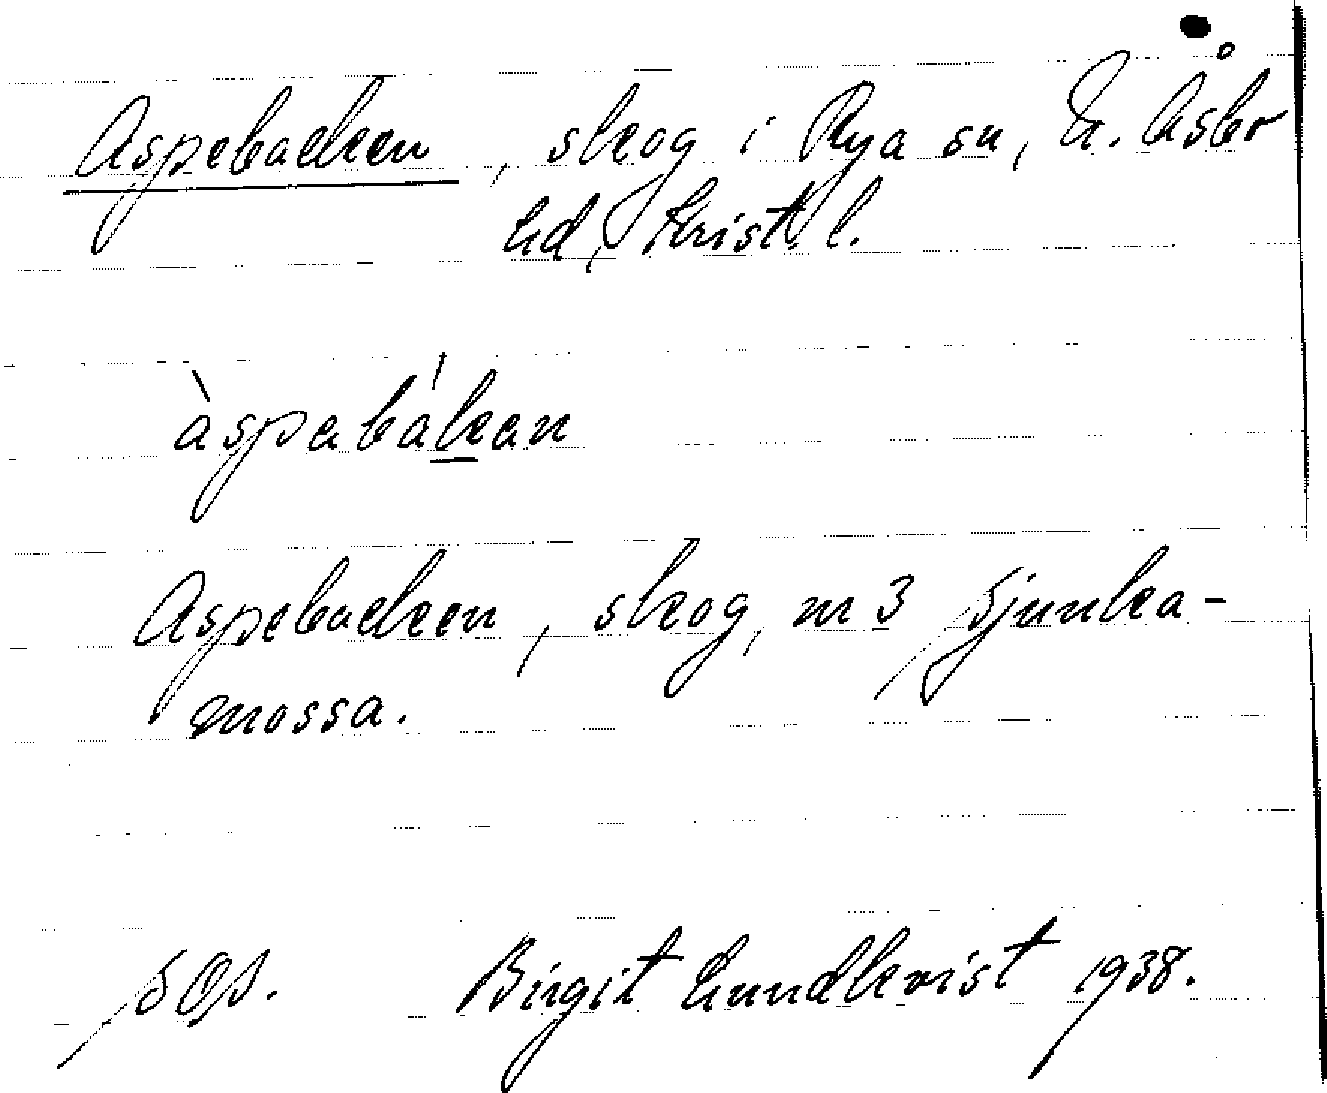 Aspebacken, skog i Rya sn, N. Åsbo
hd, Krist. l.
àspabákan
Aspebacken, skog, nr 3 Sjunka-
mossa.
SOS. Birgit Lundkvist 1938.